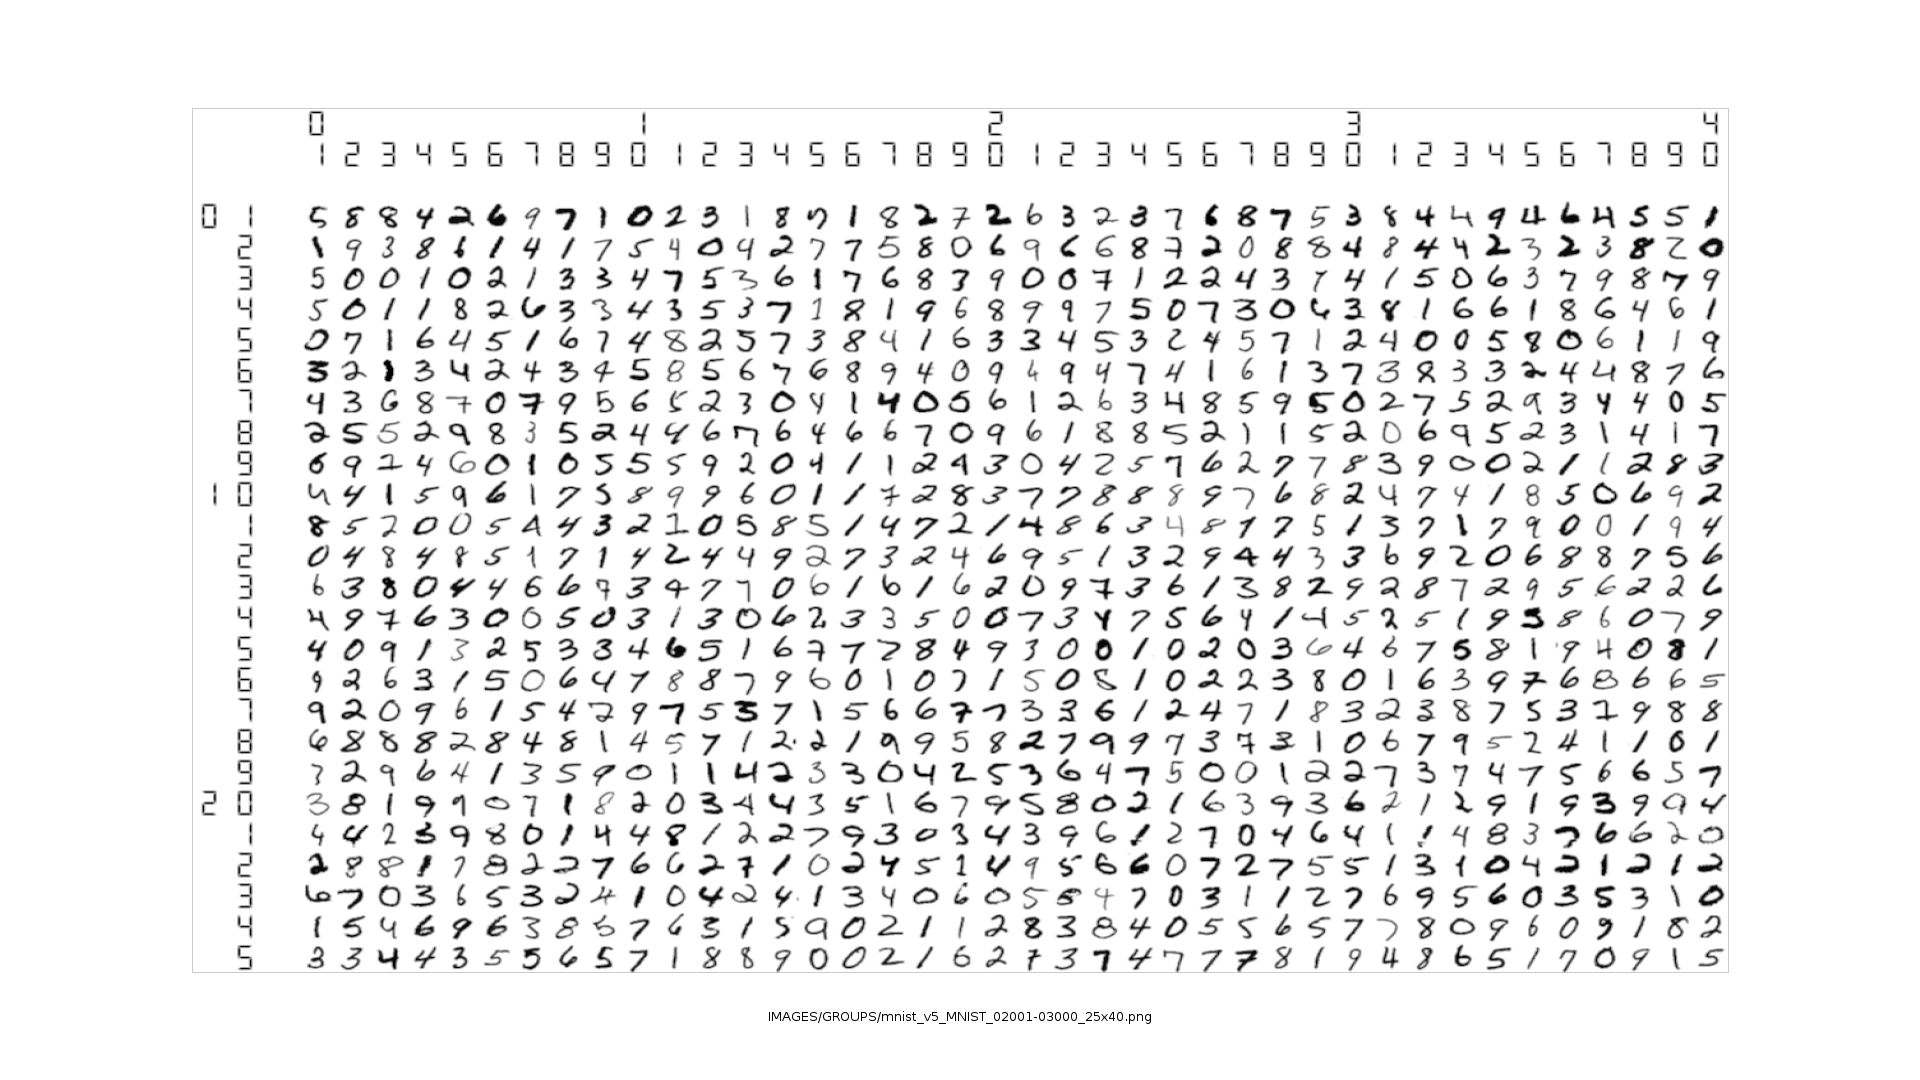 0 1 2 3 4
1 2 3 4 5 6 7 8 9 0 1 2 3 4 5 6 7 8 9 0 1 2 3 4 5 6 7 8 9 0 1 2 3 4 5 6 7 8 9 0
0 1 5 8 8 4 2 6 9 7 1 0 2 3 1 8 7 1 8 2 7 2 6 3 2 3 7 6 8 7 5 3 8 4 4 9 4 6 4 5 5 1
2 1 9 3 8 1 1 4 1 7 5 4 0 4 2 7 7 5 8 0 6 9 6 6 8 7 2 0 8 8 4 8 4 4 2 3 2 3 8 2 0
3 5 0 0 1 0 2 1 3 3 4 7 5 3 6 1 7 6 8 3 9 0 0 7 1 2 2 4 3 7 4 1 5 0 6 3 7 9 8 7 9
4 5 0 1 1 8 2 6 3 3 4 3 5 3 7 1 8 1 9 6 8 9 9 7 5 0 7 3 0 6 3 8 1 6 6 1 8 6 4 6 1
5 0 7 1 6 4 5 1 6 7 4 8 2 5 7 3 8 4 1 6 3 3 4 5 3 2 4 5 7 1 2 4 0 0 5 8 0 6 1 1 9
6 3 2 1 3 4 2 4 3 4 5 8 5 6 7 6 8 9 4 0 9 4 9 4 7 4 1 6 1 3 7 3 8 3 3 2 4 4 8 7 6
7 4 3 6 8 7 0 7 9 5 6 5 2 3 0 4 1 4 0 5 6 1 2 6 3 4 8 5 9 5 0 2 7 5 2 9 3 4 4 0 5
8 2 5 5 2 9 8 3 5 2 4 4 6 7 6 4 6 6 7 0 9 6 1 8 8 5 2 1 1 5 2 0 6 9 5 2 3 1 4 1 7
9 6 9 2 4 6 0 1 0 5 5 5 9 2 0 4 1 1 2 9 3 0 4 2 5 7 6 2 7 7 8 3 9 0 0 2 1 1 2 8 3
1 0 4 4 1 5 9 6 1 7 5 8 9 9 6 0 1 1 7 2 8 3 7 7 8 8 8 9 7 6 8 2 4 7 4 1 8 5 0 6 9 2
1 8 5 2 0 0 5 4 4 3 2 1 0 5 8 5 1 4 7 2 1 4 8 6 3 4 8 7 7 5 1 3 7 1 7 9 0 0 1 9 4
2 0 4 8 4 8 5 1 7 1 4 2 4 4 9 2 7 3 2 4 6 9 5 1 3 2 9 4 4 3 3 6 9 2 0 6 8 8 7 5 6
3 6 3 8 0 4 4 6 6 9 3 4 7 7 0 6 1 6 1 6 2 0 9 7 3 6 1 3 8 2 9 2 8 7 2 9 5 6 2 2 6
4 4 9 7 6 3 0 0 5 0 3 1 3 0 6 2 3 3 5 0 0 7 3 4 7 5 6 4 1 4 5 2 5 1 9 5 8 6 0 7 9
5 4 0 9 1 3 2 5 3 3 4 6 5 1 6 7 7 7 8 4 9 3 0 0 1 0 2 0 3 6 4 6 7 5 8 1 9 4 0 8 1
6 9 2 6 3 1 5 0 6 4 7 8 8 7 9 6 0 1 0 7 1 5 0 5 1 0 2 2 3 8 0 1 6 3 9 7 6 8 6 6 5
7 9 2 0 9 6 1 5 4 2 9 7 5 3 7 1 5 6 6 7 7 3 3 6 1 2 4 7 1 8 3 2 3 8 7 5 3 7 9 8 8
8 6 8 8 8 2 8 4 8 1 4 5 7 1 2 2 1 9 9 5 8 2 7 9 9 7 3 7 3 1 0 6 7 9 5 2 4 1 1 0 1
9 3 2 9 6 4 1 3 5 9 0 1 1 4 2 3 3 0 4 2 5 3 6 4 7 5 0 0 1 2 2 7 3 7 4 7 5 6 6 5 7
2 0 3 8 1 9 9 0 7 1 8 2 0 3 4 4 3 5 1 6 7 9 5 8 0 2 1 6 3 9 3 6 2 1 2 9 1 9 3 9 9 4
1 4 4 2 3 9 8 0 1 4 4 8 1 2 2 7 9 3 0 3 4 3 9 6 1 2 7 0 4 6 4 1 1 4 8 3 7 6 6 2 0
2 2 8 8 1 7 8 2 2 7 6 6 2 7 1 0 2 4 5 1 4 9 5 6 6 0 7 2 7 5 5 1 3 1 0 4 2 1 2 1 2
3 6 7 0 3 6 5 3 2 4 1 0 4 2 4 1 3 4 0 6 0 5 5 4 7 0 3 1 1 2 7 6 9 5 6 0 3 5 3 1 0
4 1 5 4 6 9 6 3 8 5 7 6 3 1 5 9 0 2 1 1 2 8 3 8 4 0 5 5 6 5 7 7 8 0 9 6 0 9 1 8 2
5 3 3 4 4 3 5 5 6 5 7 1 8 8 9 0 0 2 1 6 2 7 3 7 4 7 7 7 8 1 9 4 8 6 5 1 7 0 9 1 5
IMAGES/GROUPS/mnist_v5_MNIST_02001-03000_25x40.png